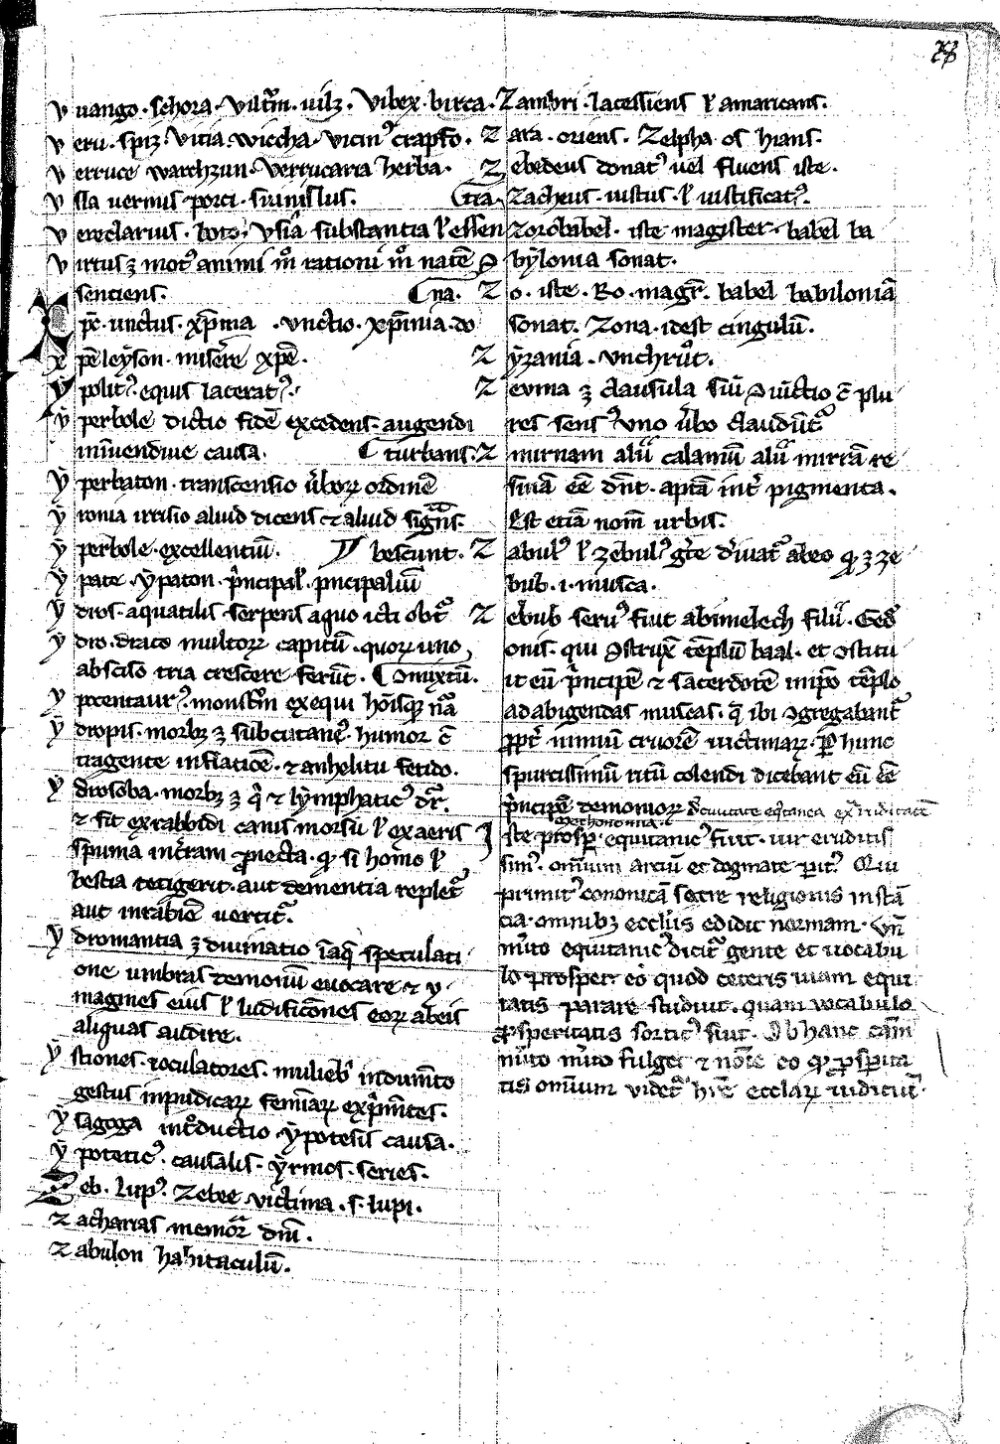 v uango · schora · viltrm̄ · uilz · Vibex · birca ·
v eru · spiz · Vitia wiccha · vicin⁹ crapfo ·
v erruce warchzun · Verrucaria herba ·
v sla uermis porci · sumislus · tia
v ereclarius · boto · Vsia substantia ł essen
v irtus ꝫ mot⁹ animi mͦ rationi mͦ natē ꝯ
sentiens · na ·
x pc̄ · unctus · xp̄ma · unctio · xp̄inia · do
x pē leyson · miserere xpē ·
y polit⁹ · equis lacerat⁹ ·
y perbole dictio fidē excedens · augendi
minuendiue causa · turbans ·
y perbaton · transcensio ūboꝝ ordinē
y ronia irrisio aliud dicens et aliud signās ·
y perbole · excellentiū · bescunt ·
y pate · ypaton · p̄ncipal⁹ · p̄ncipaliū
y dros · aquatilis serpens a quo icti obt
y dro · draco multoꝝ capitū · quoꝝ uno
absciso tria crescere ferūt · ꝯmixtū ·
y pocentaur⁹ · monstrm̄ ex equi hoīsqꝫ nā
y dropis · morbꝫ ꝫ subcutane⁹ · humor ē
tiagente inflaticōe · ⁊ anhelitu fetido ·
y drofoba · morbꝫ ꝫ q̄ ⁊ lymphatic⁹ dr̄ ·
⁊ fit ex rabbidi canis morsu ł ex aeris
spuma in t̄ram ꝓiecta · qͣ si homo ł
bestia tetigerit · aut dementia replet᷑
aut in rabiē uertit᷑ ·
y dromantia ꝫ diuinatio ī aq̄ speculati
one umbras demonū euocare ⁊ y
magines eius ł ludificōnes eoꝝ ab eis
aliquas audire ·
y striones · ioculatores · muliebri indumēto
gestus impudicaꝝ feminaꝝ exp̄mētes ·
y sagoga int̄ductio · ypotesis causa ·
y potetic⁹ · causalis · yrmos · series ·
Z eb · lup⁹ · Zebee · victima · s · lupi ·
z acharias memor dn̄i ·
z abulon habitaculū ·
Z ambri · lacessiens ł amaricans ·
Z ara · oriens · Zelpha · os hians ·
Z ebedeus donat⁹ uel fluens iste ·
Zacheus · iustus · ł iustificat⁹ ·
Zorobabel · iste magister · babel ba
bylonia sonat ·
Z o · iste · Ro · magr̄ · babel babiloniā
sonat · Zona · idest cingulū ·
Z yzania · vnchrut ·
Z euma ꝫ clausula siū ꝯiūctio ē plu
res sens⁹ uno ūbo claudūt᷑
Z mirnam alij calamū alij mirrā re
sinā eē dn̄t · aptā int̄ pigmenta ·
Est etiā nom̄ urbis ·
Z abul⁹ ł zebul⁹ gr̄te d̄iuat᷑ ab eo qͥ ꝫ ze
bub · i · musca ·
Z ebub seru⁹ fuit abimelech filij · Ged
onis · qui ꝯstrux̄ tēplū baal · et ꝯstitu
it eū p̄ncipē ⁊ sacerdotē in ipō tēplo
ad abigendas muscas · q̄ ibi ꝯgregabant᷑
ꝓpt̄ nimiū cruorē uictimaꝝ · ꝑ hunc
spurcissimū ritū colendi dicebant eū eē
p̄ncipē demonioꝝ
Iste prosper equitanic⁹ fuit · uir eruditis
sim⁹ · omniū artiū et dogmate ꝑit⁹ · Qui
primit⁹ cononicā sacre religionis instā
cia · omnibꝫ eccl̄iis edidit normam · Vn̄
m̄ito equitanic⁹ dicit᷑ gente et uocabu
lo prosper · eo quod ceteris uiam equi
tatis parare studiuit · quam uocabulo
ꝓsperitatis sortit⁹ siut · Ob hanc cām
m̄ito m̄ito fulget ⁊ noīe eo qͥ ꝓsp̄ita
tis omnium videt᷑ hr̄e ecclaꝝ iudiciū ·